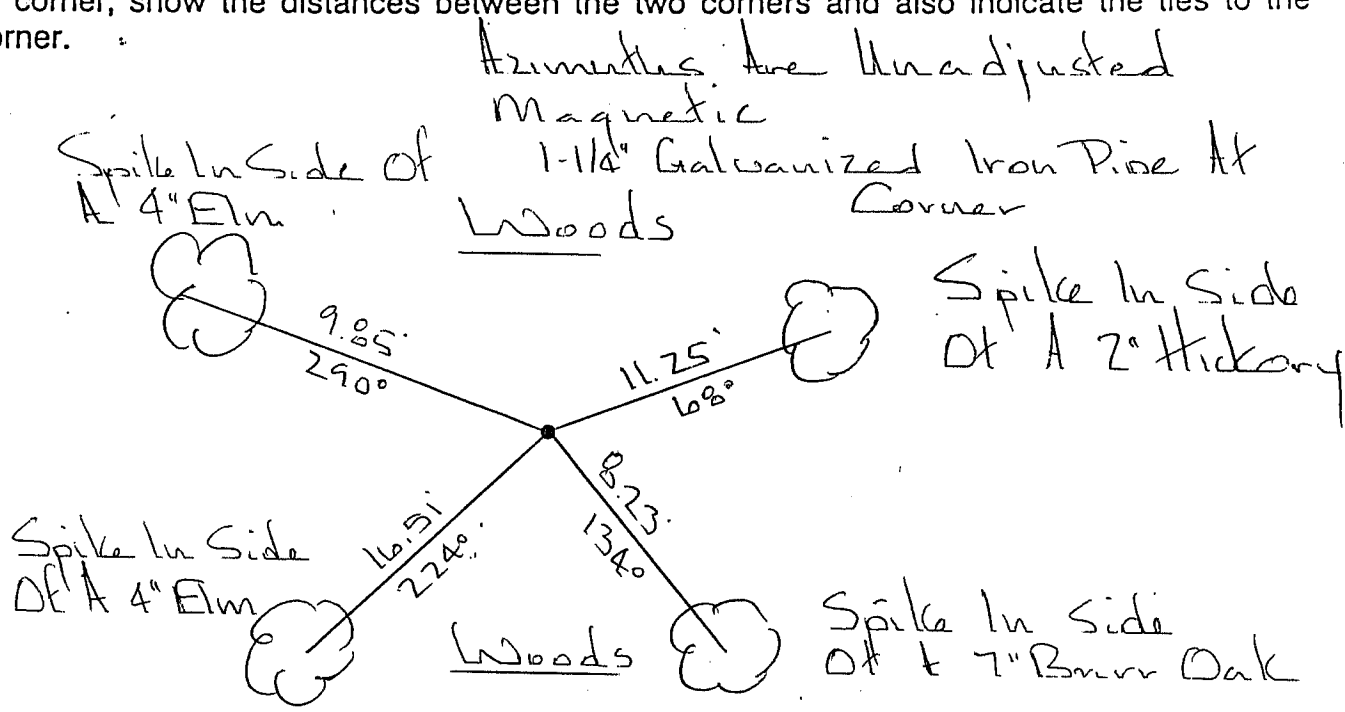 corner, show the distances between the two corners and also indicate the ties to the
rner.
Azimuths Are Unadjusted
Magnetic
Spike In Side Of
A 4" Elm
1-1/4" Galvanized Iron Pipe At
Corner
Woods
Spike In Side
Of A 2" Hickory
9.85'
290°
11.25'
68°
8.23'
134°
16.51
224°
Spike In Side
Of A 4" Elm
Woods
Spike In Side
Of A 7" Burr Oak